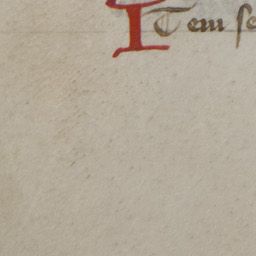 ITem se